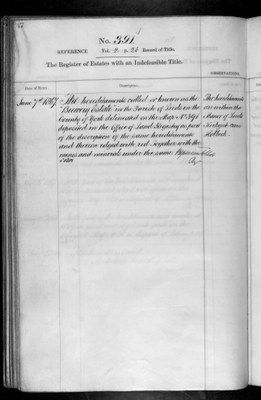 No. 391
REFERENCE Vol. 2. p. 26 Record of Title.
The Register of Estates with an Indefeasible Title.
OBSERVATIONS.
Date of Entry.
Description.
June 7th 1867
All hereditaments called or known as the
Estate" in the Parish of Leeds in the
County of York delineated on the Map No. 391
deposited in the Office of Land Registry as part
of the description of the same hereditaments
and thereon edged with red. Together with the
mines and minerals under the same.
The hereditaments
are within the
Manor of Leeds